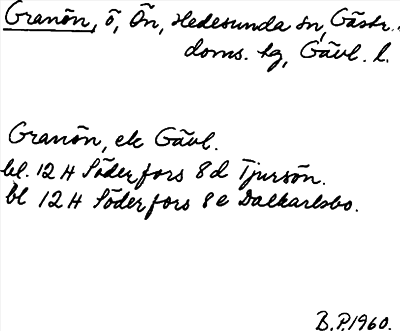 Granön, ö, Ön, Hedesunda sn, Gästr.
doms. hg, Gävl. l.
Granön, ek Gävl.
bl. 12 H Söderfors 8 d Tjursön.
bl 12 H Söderfors 8 e Dalkarlsbo.
B.P. 1960.